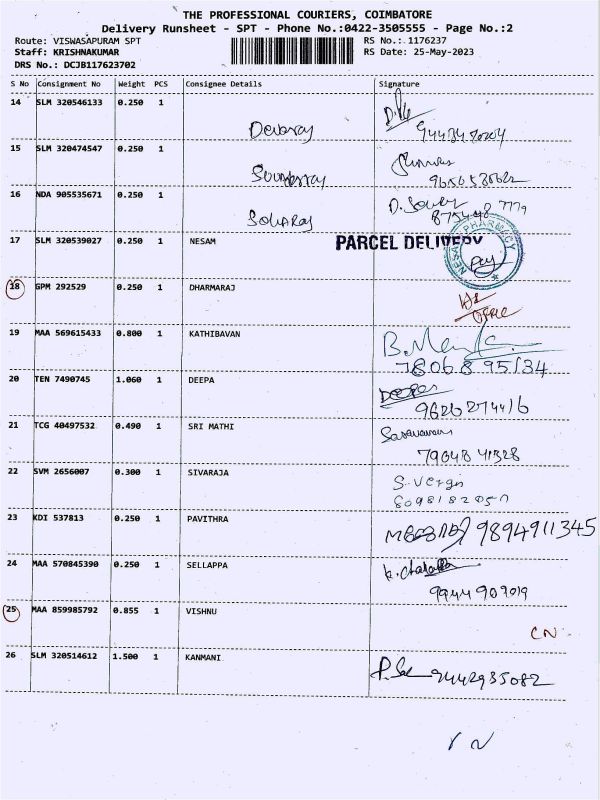 THE PROFESSIONAL COURIERS, COIMBATORE
Delivery Runsheet - SPT - Phone No.:0422-3505555 - Page No.:2
Route: VISWASAPURAM SPT RS No.: 1176237
Staff: KRISHNAKUMAR RS Date: 25-May-2023
DRS No.: DCJB117623702
S No Consignment No Weight PCS Consignee Details Signature
14 SLM 320546133 0.250 1
Devaraj
15 SLM 320474547 0.250 1
16 NDA 905535671 0.250 1
17 SLM 320539027 0.250 1 NESAM PARCEL DELIVERY
NESAM PHARMACY
18 GPM 292529 0.250 1 DHARMARAJ
19 MAA 569615433 0.800 1 KATHIBAVAN
7806895134
20 TEN 7490745 1.060 1 DEEPA
Deepa
9626274416
21 TCG 40497532 0.490 1 SRI MATHI
Saravanan
79048 41328
22 SVM 2656007 0.300 1 SIVARAJA
23 KDI 537813 0.250 1 PAVITHRA
9894911345
24 MAA 570845390 0.250 1 SELLAPPA
9944909019
25 MAA 859985792 0.855 1 VISHNU
CN
26 SLM 320514612 1.500 1 KANMANI
9442935082